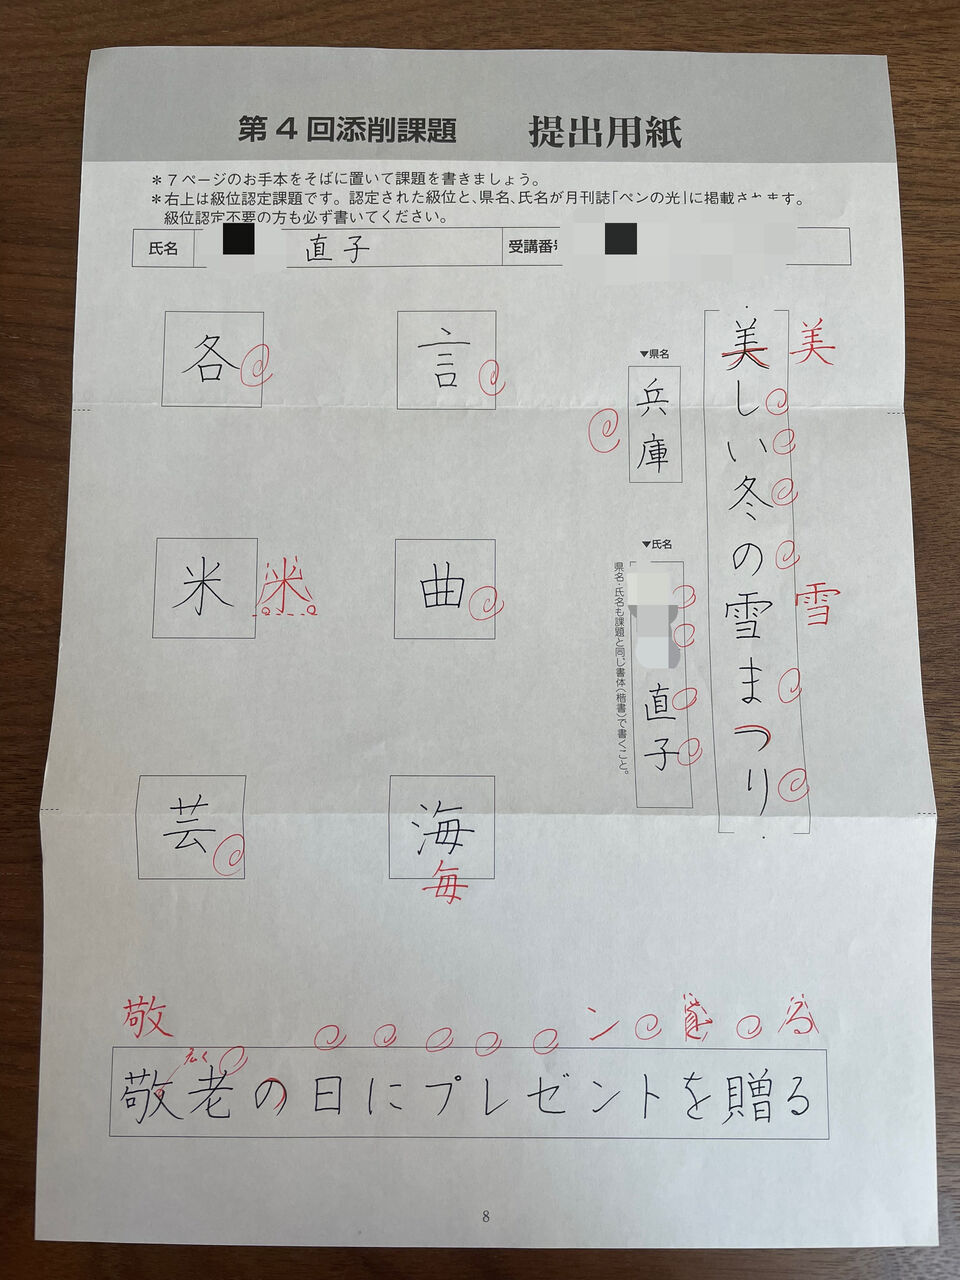 第4回添削課題　提出用紙
＊7ページのお手本をそばに置いて課題を書きましょう。
＊右上は級位認定課題です。認定された級位と、県名、氏名が月刊誌「ペンの光」に掲載されます。
級位認定不要の方も必ず書いてください。
氏名　直子　受講番号
美しい冬の雪まつり
美
雪
▼県名
兵庫
▼氏名
直子
県名・氏名も課題と同じ書体（楷書）で書くこと。
言
各
曲
米
米
海
毎
芸
敬
ン
る
広く
敬老の日にプレゼントを贈る
8